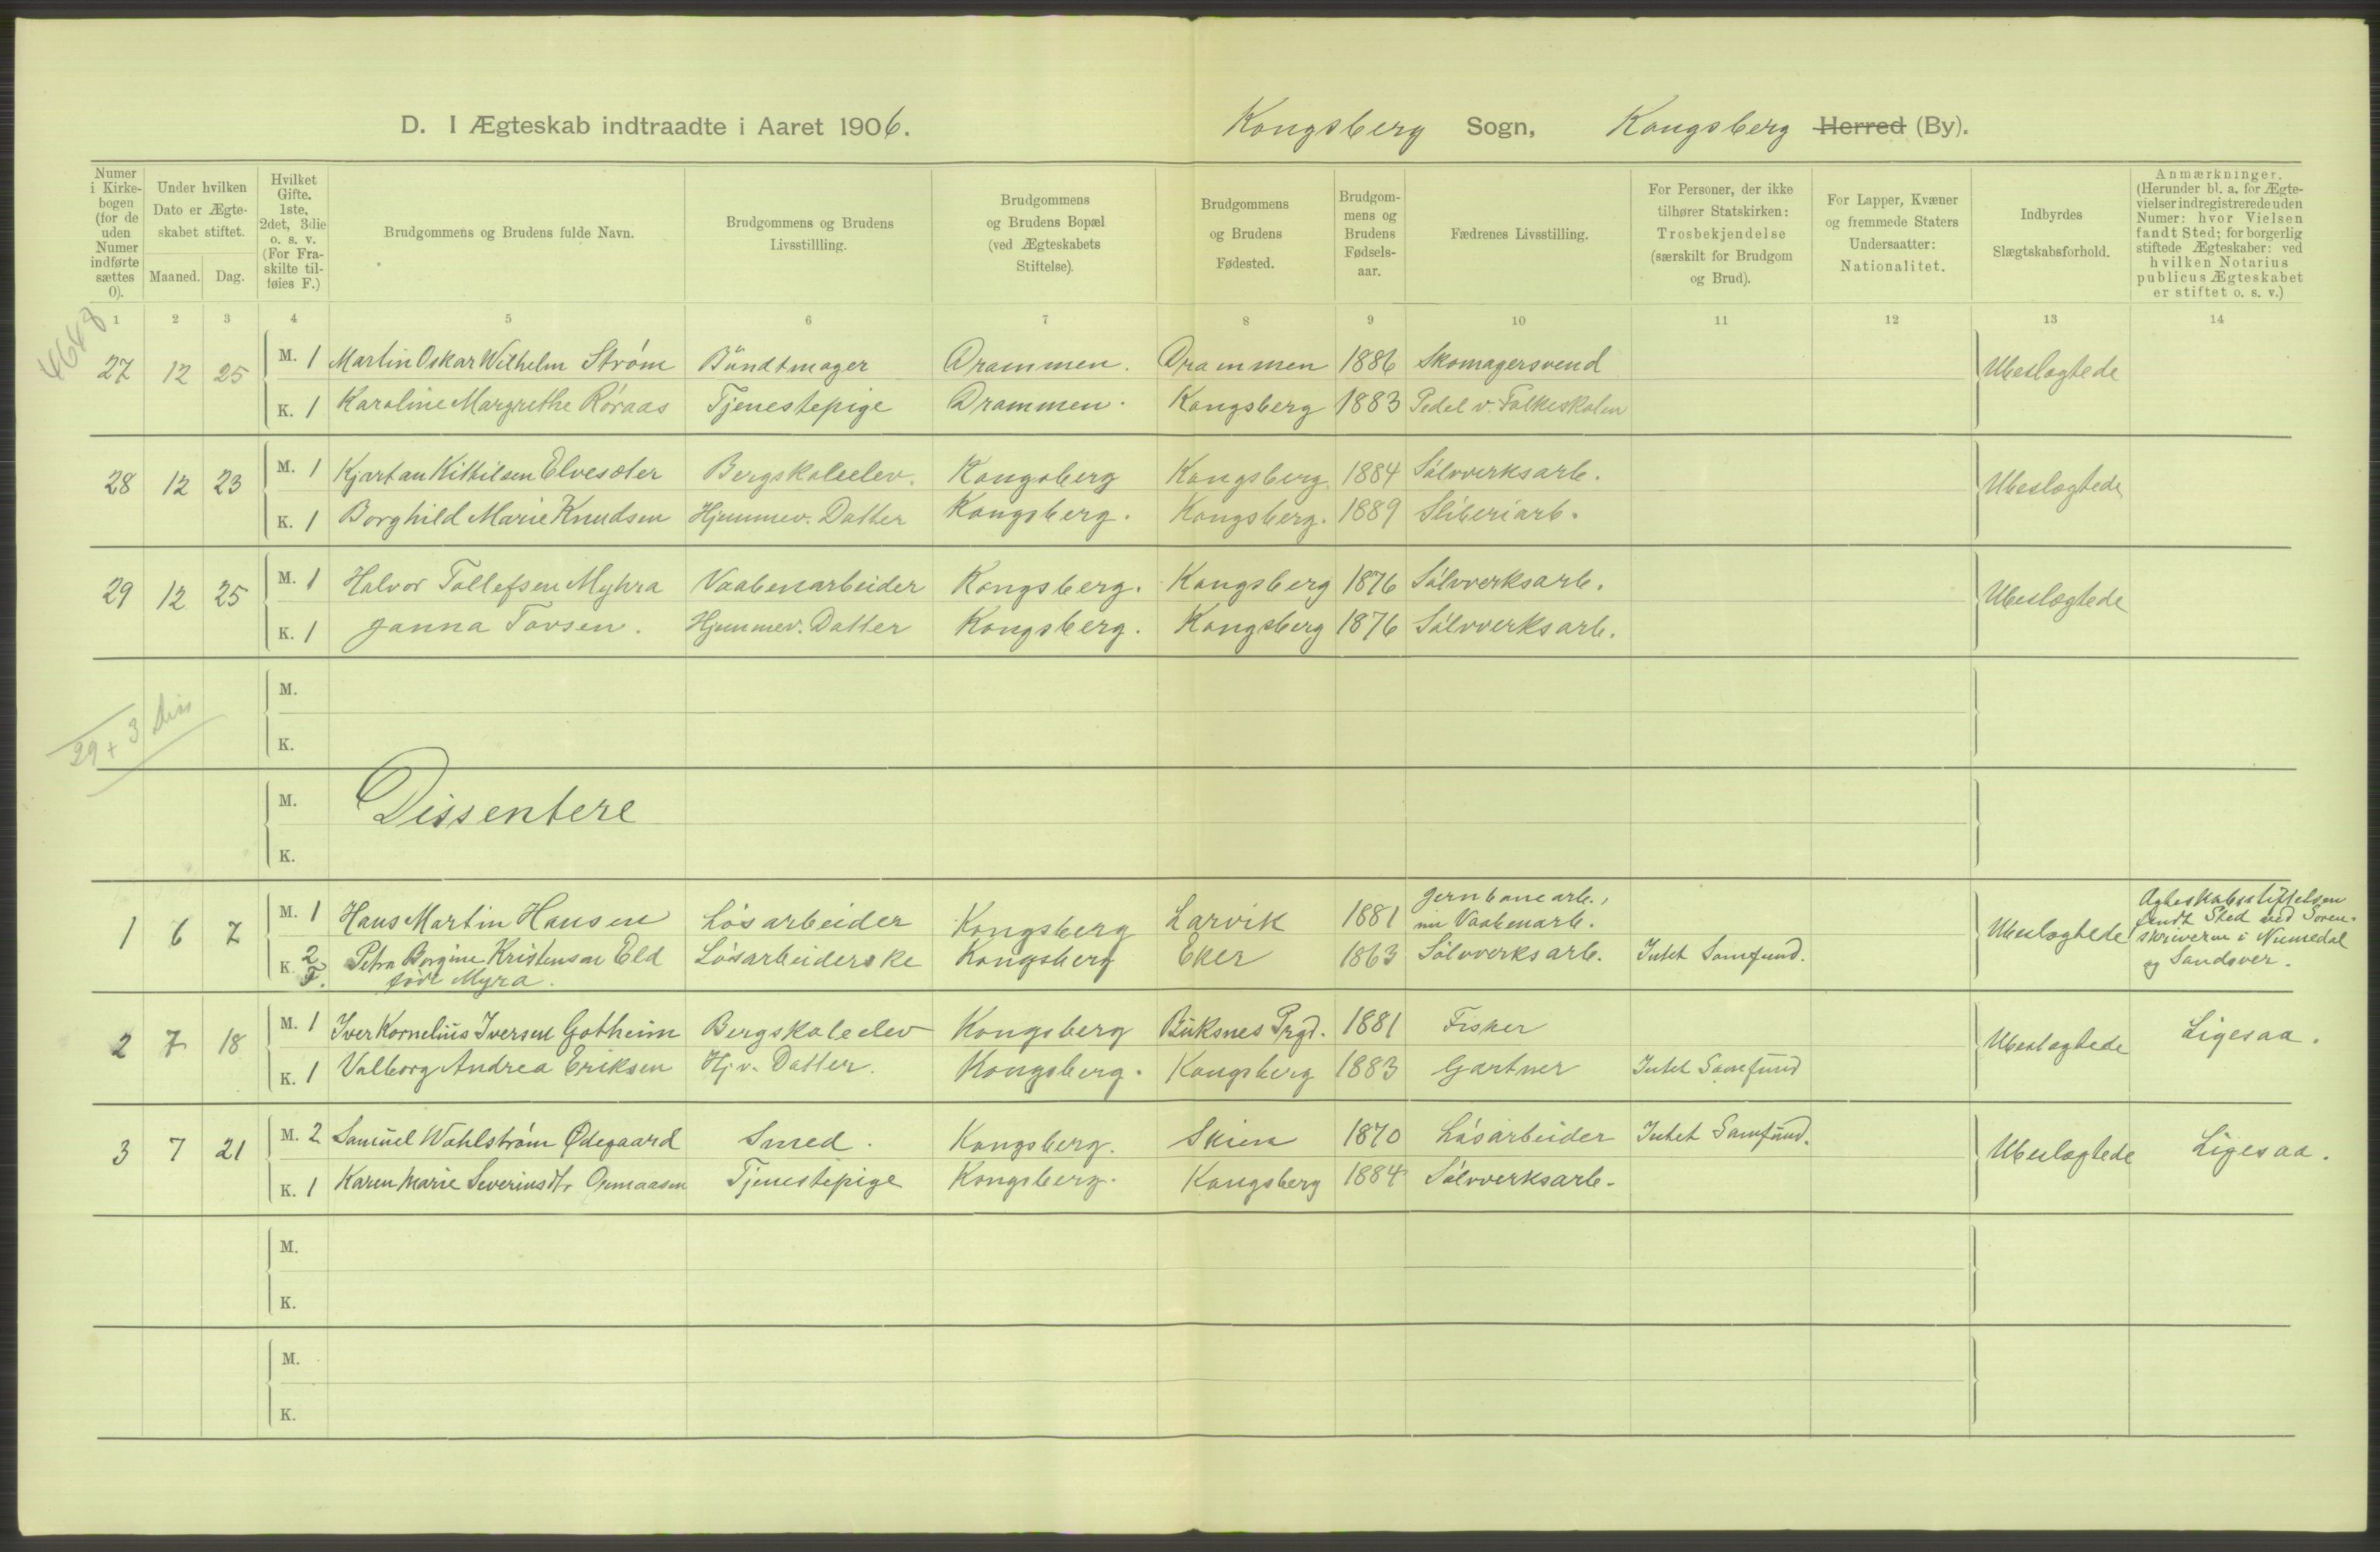 D. I Ægteskab indtraadte i Aaret 1906. Kongsberg Sogn, Kongsberg Herred (By).
Numer i Kirkebogen (for de uden Numer indførte sættes 0).
Under hvilken Dato er Ægteskabet stiftet.
Maaned. Dag.
Hvilket Gifte. 1ste, 2det, 3die o. s. v. (For Fraskilte tilføies F.)
Brudgommens og Brudens fulde Navn.
Brudgommens og Brudens Livsstillling.
Brudgommens og Brudens Bopæl (ved Ægteskabets Stiftelse).
Brudgommens og Brudens Fødested.
Brudgommens og Brudens Fødselsaar.
Fædrenes Livsstilling.
For Personer, der ikke tilhører Statskirken: Trosbekjendelse (særskilt for Brudgom og Brud).
For Lapper, Kvæner og fremmede Staters Undersaatter: Nationalitet.
Indbyrdes Slægtskabsforhold.
Anmærkninger. (Herunder bl. a. for Ægtevielser indregistrerede uden Numer: hvor Vielsen fandt Sted; for borgerlig stiftede Ægteskaber: ved hvilken Notarius publicus Ægteskabet er stiftet o. s. v.)
1 2 3 4 5 6 7 8 9 10 11 12 13 14
27 12 25 M. 1 Martin Oskar Wilhelm Strøm Bundtmager Drammen. Drammen 1886 Skomagersvend Ubeslægtede
K. 1 Karoline Margrethe Røraas Tjenestepige Drammen. Kongsberg 1883 Pedel v. Folkeskolen
28 12 23 M. 1 Kjartan Kittilsen Elvesæter Bergskoleelev. Kongsberg Kongsberg. 1884 Sølvverksarb. Ubeslægtede
K. 1 Borghild Marie Knudsen Hjemmev. Datter Kongsberg. Kongsberg. 1889 Sliberiarb.
29 12 25 M. 1 Halvor Tollefsen Myhra Vaabenarbeider Kongsberg. Kongsberg 1876 Sølvverksarb. Ubeslægtede
K. 1 Janna Tovsen. Hjemmev. Datter Kongsberg. Kongsberg 1876 Sølvverksarb.
M.
29 + 3 diss
K.
M. Dissentere
K.
1 6 7 M. 1 Hans Martin Hansen Løsarbeider Kongsberg Larvik 1881 Jernbanearb., nu Vaabenarb. Ubeslægtede Ægteskabsstiftelsen fandt Sted ved Sorenskriveren i Numedal og Sandsver.
K. 2 F. Petra Borgine Kristensen Eld født Myra. Løsarbeiderske Kongsberg Eker 1863 Sølvverksarb. Intet Samfund.
2 7 18 M. 1 Iver Kornelius Iversen Gotheim Bergskoleelev Kongsberg Buksnes Prgd. 1881 Fisker Ubeslægtede Ligesaa.
K. 1 Valborg Andrea Eriksen Hjv. Datter. Kongsberg. Kongsberg 1883 Gartner Intet Samfund
3 7 21 M. 2 Samuel Wahlstrøm Ødegaard Smed. Kongsberg. Skien 1870 Løsarbeider Intet Samfund. Ubeslægtede Ligesaa.
K. 1 Karen Marie Severinsdtr Tjenestepige Kongsberg. Kongsberg 1884 Sølvverksarb.
M.
K.
M.
K.